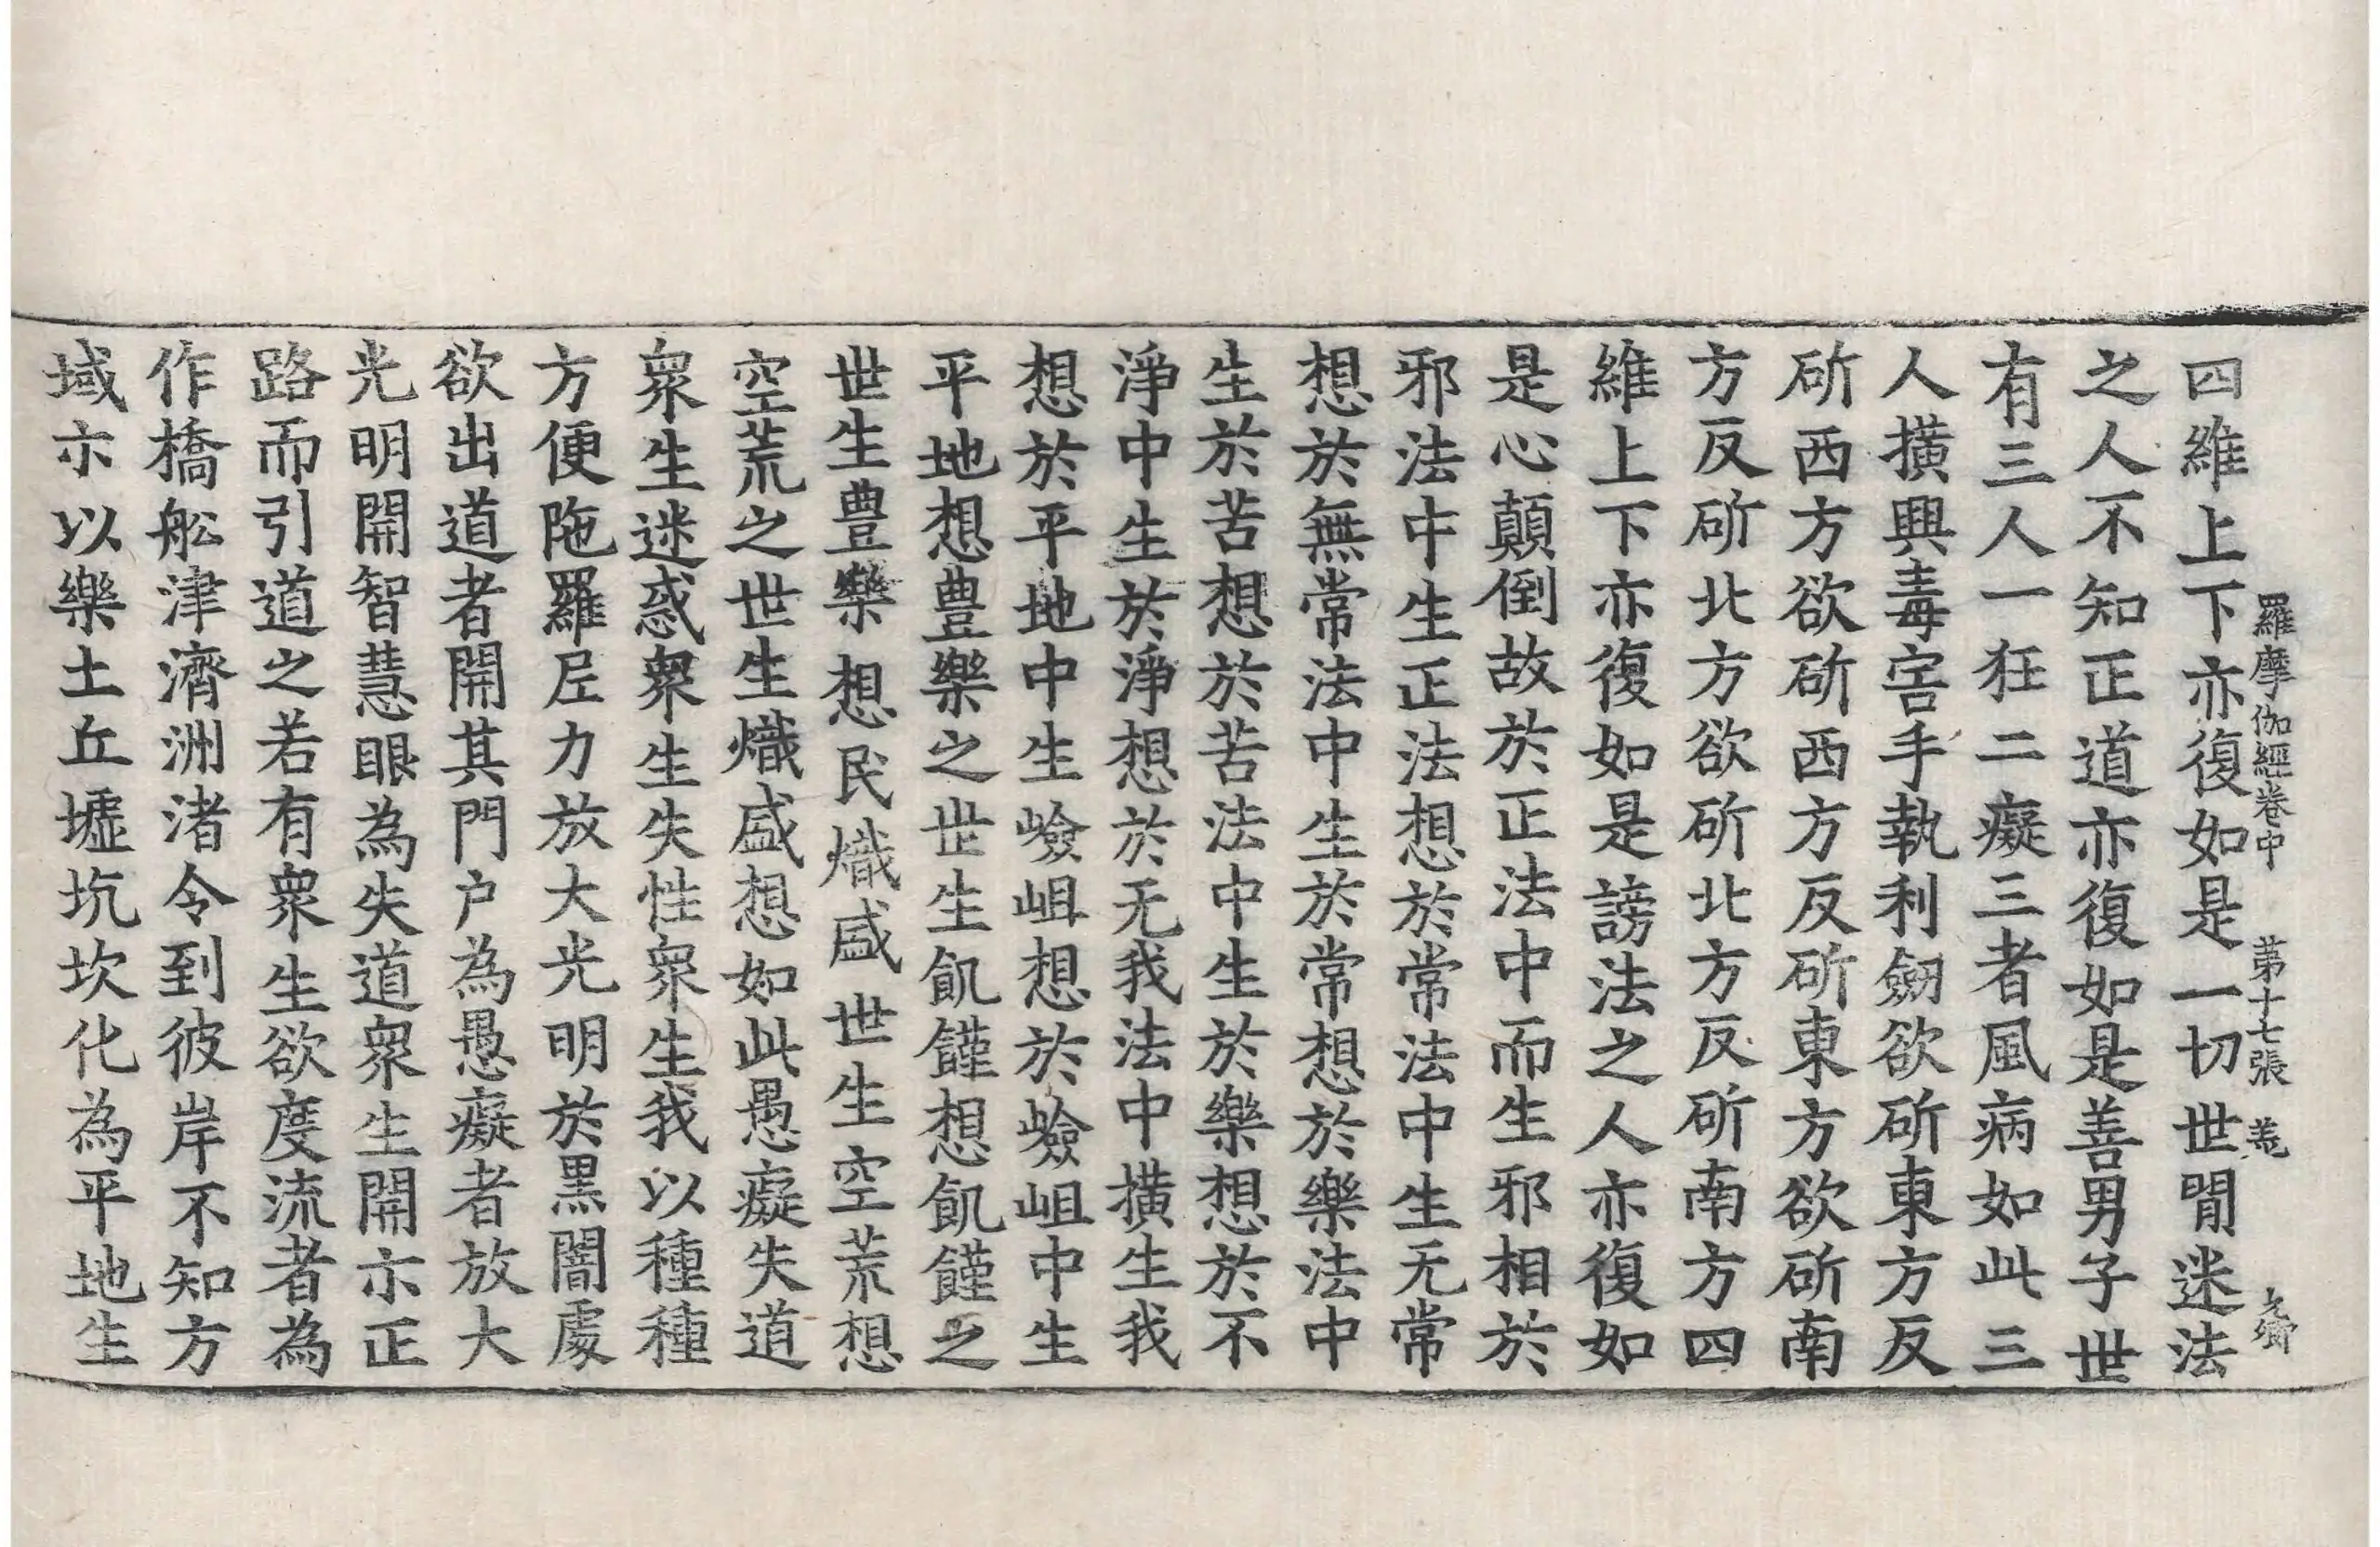 羅摩伽經卷中　第十七張　羔
四維上下亦復如是一切世間迷法
之人不知正道亦復如是善男子世
有三人一狂二癡三者風病如此三
人撗興毒害手執利劒欲斫東方反
斫西方欲斫西方反斫東方欲斫南
方反斫北方欲斫北方反斫南方四
維上下亦復如是謗法之人亦復如
是心顛倒故於正法中而生邪相於
邪法中生正法想於常法中生无常
想於無常法中生於常想於樂法中
生於苦想於苦法中生於樂想於不
淨中生於淨想於无我法中撗生我
想於平地中生嶮岨想於嶮岨中生
平地想豊樂之世生飢饉想飢饉之
世生豊樂想民熾盛世生空荒想
空荒之世生熾盛想如此愚癡失道
衆生迷惑衆生失性衆生我以種種
方便陁羅𡰱力放大光明於黒闇處
欲出道者開其門户為愚癡者放大
光明開智慧眼為失道衆生開示正
路而引道之若有衆生欲度流者為
作橋舩津濟洲渚令到彼岸不知方
域示以樂土丘墟坑坎化為平地生